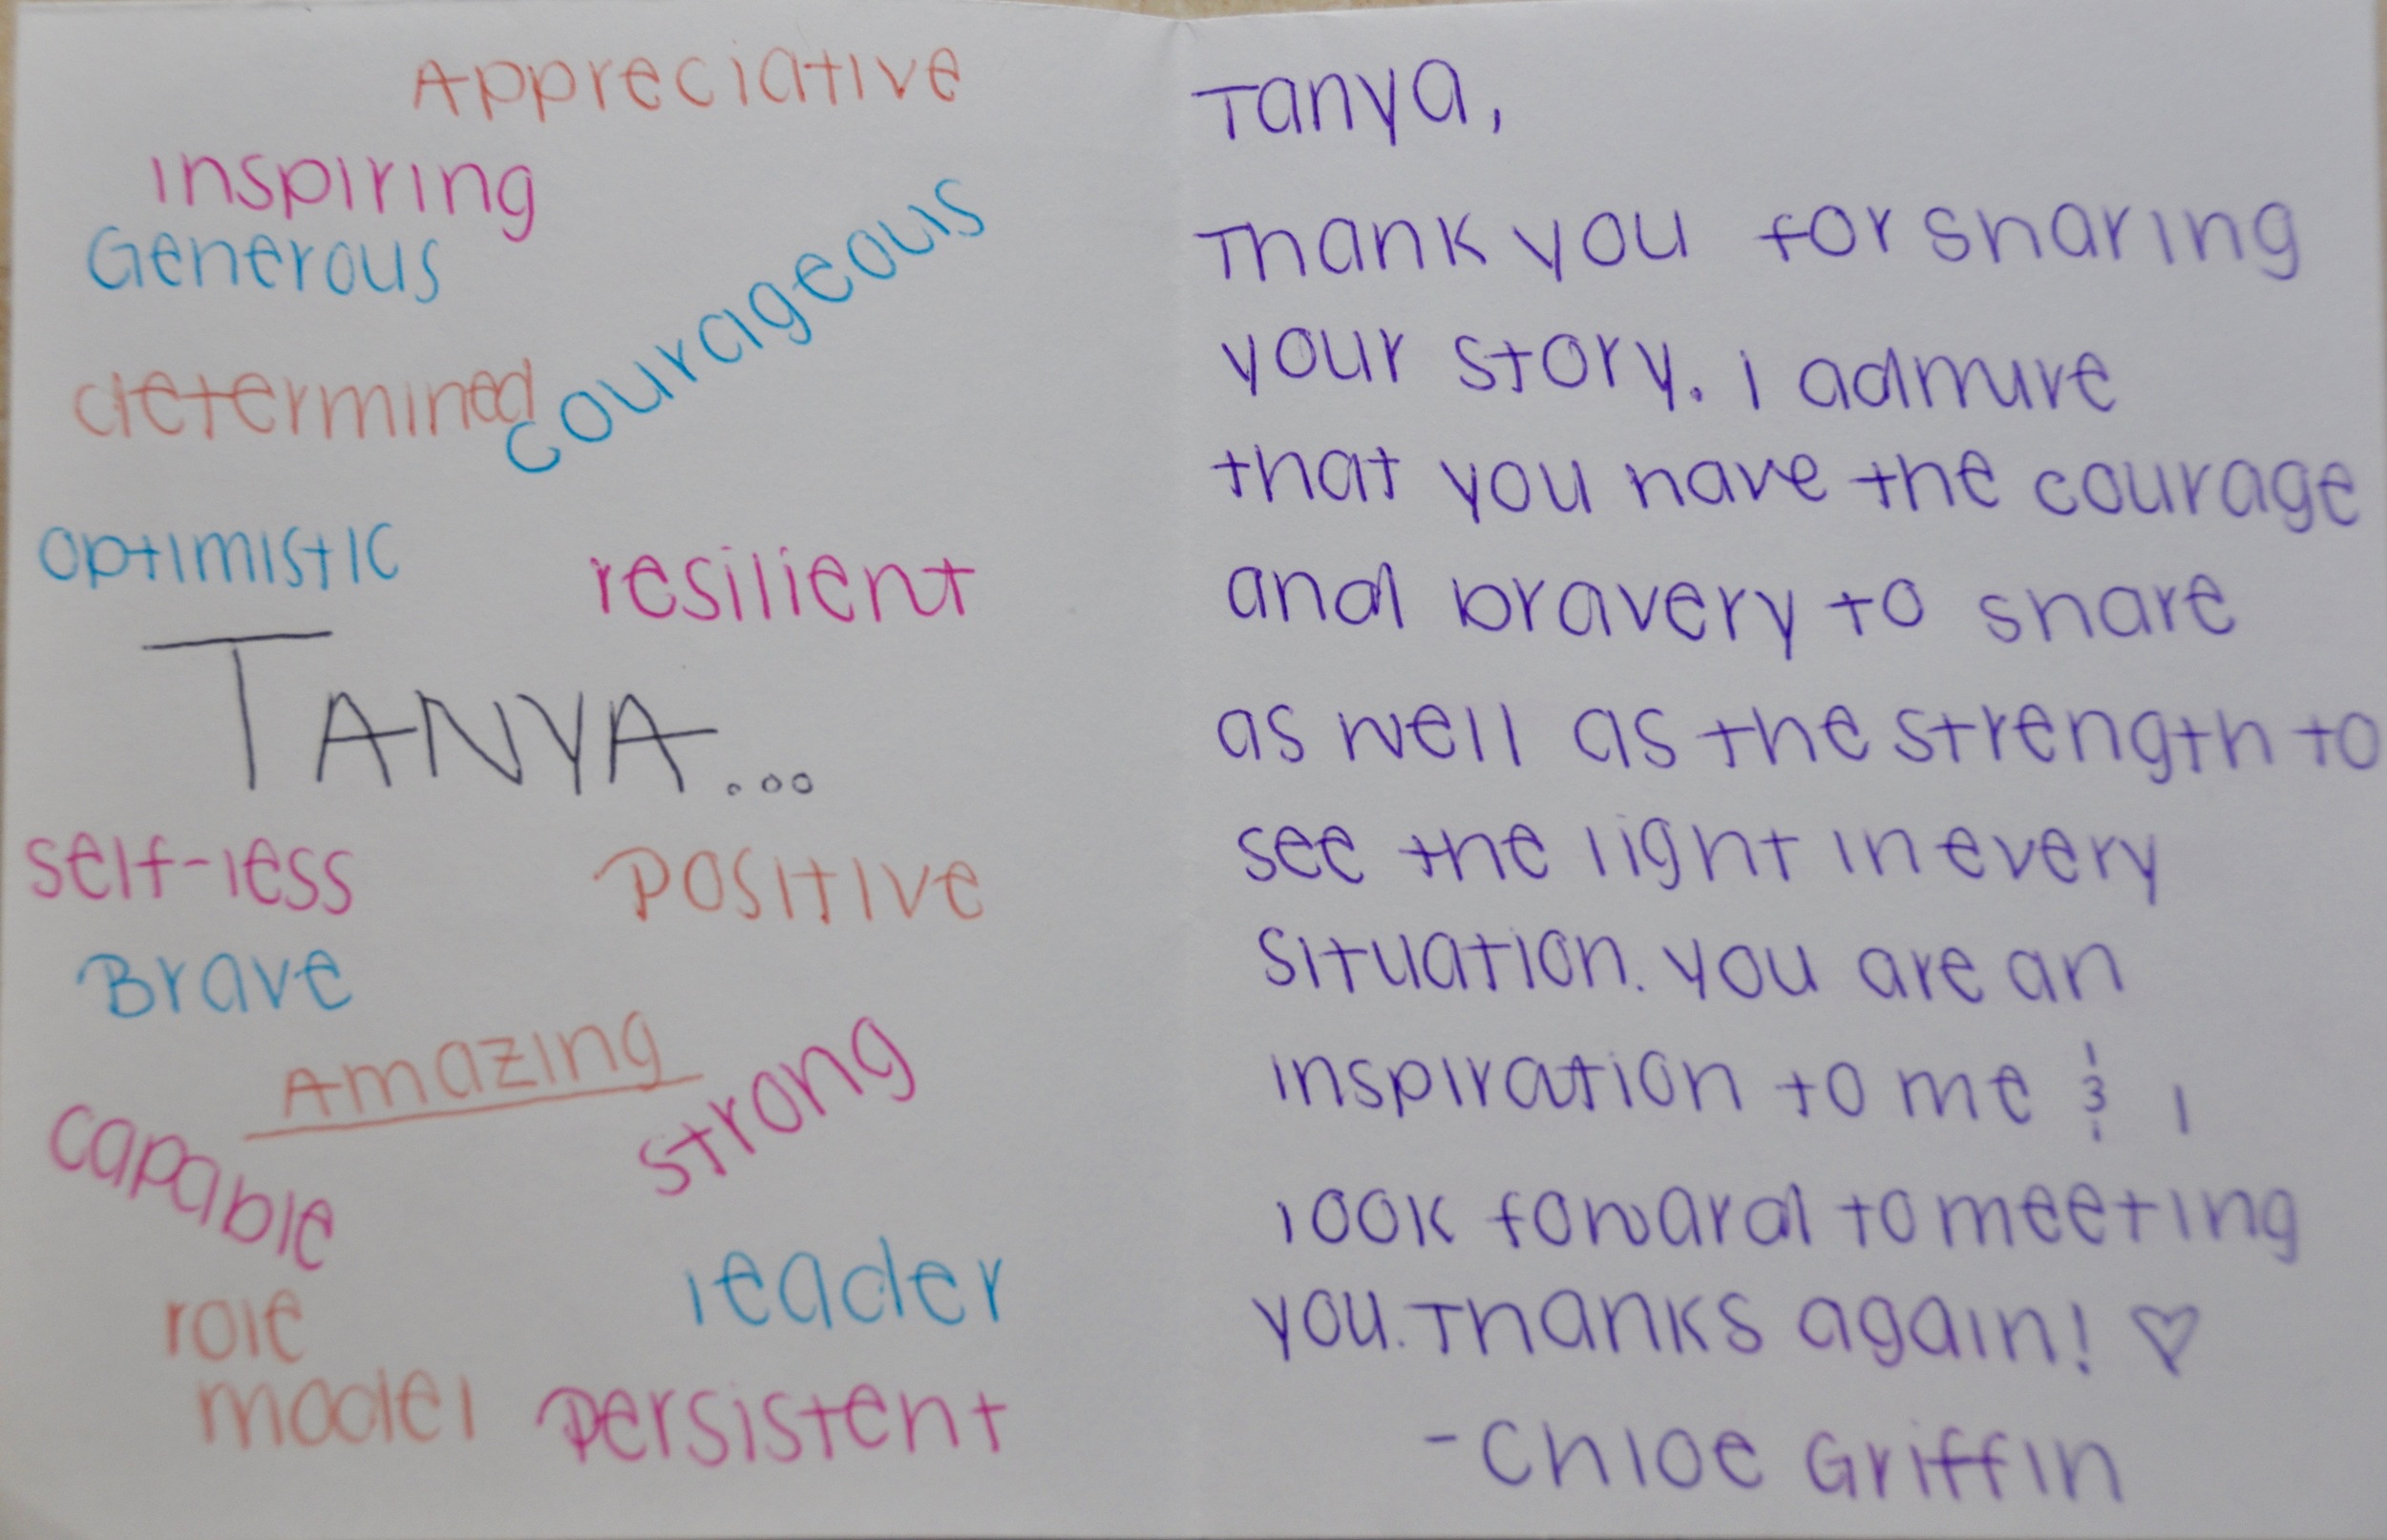 Appreciative
inspiring
Generous
courageous
determined
optimistic
resilient
TANYA...
self-less
positive
Brave
Amazing
strong
capable
leader
role
model
persistent
Tanya,
Thank you for sharing
your story. i admire
that you have the courage
and bravery to share
as well as the strength to
see the light in every
situation. you are an
inspiration to me & i
look forward to meeting
you. Thanks again! ♡
- Chloe Griffin